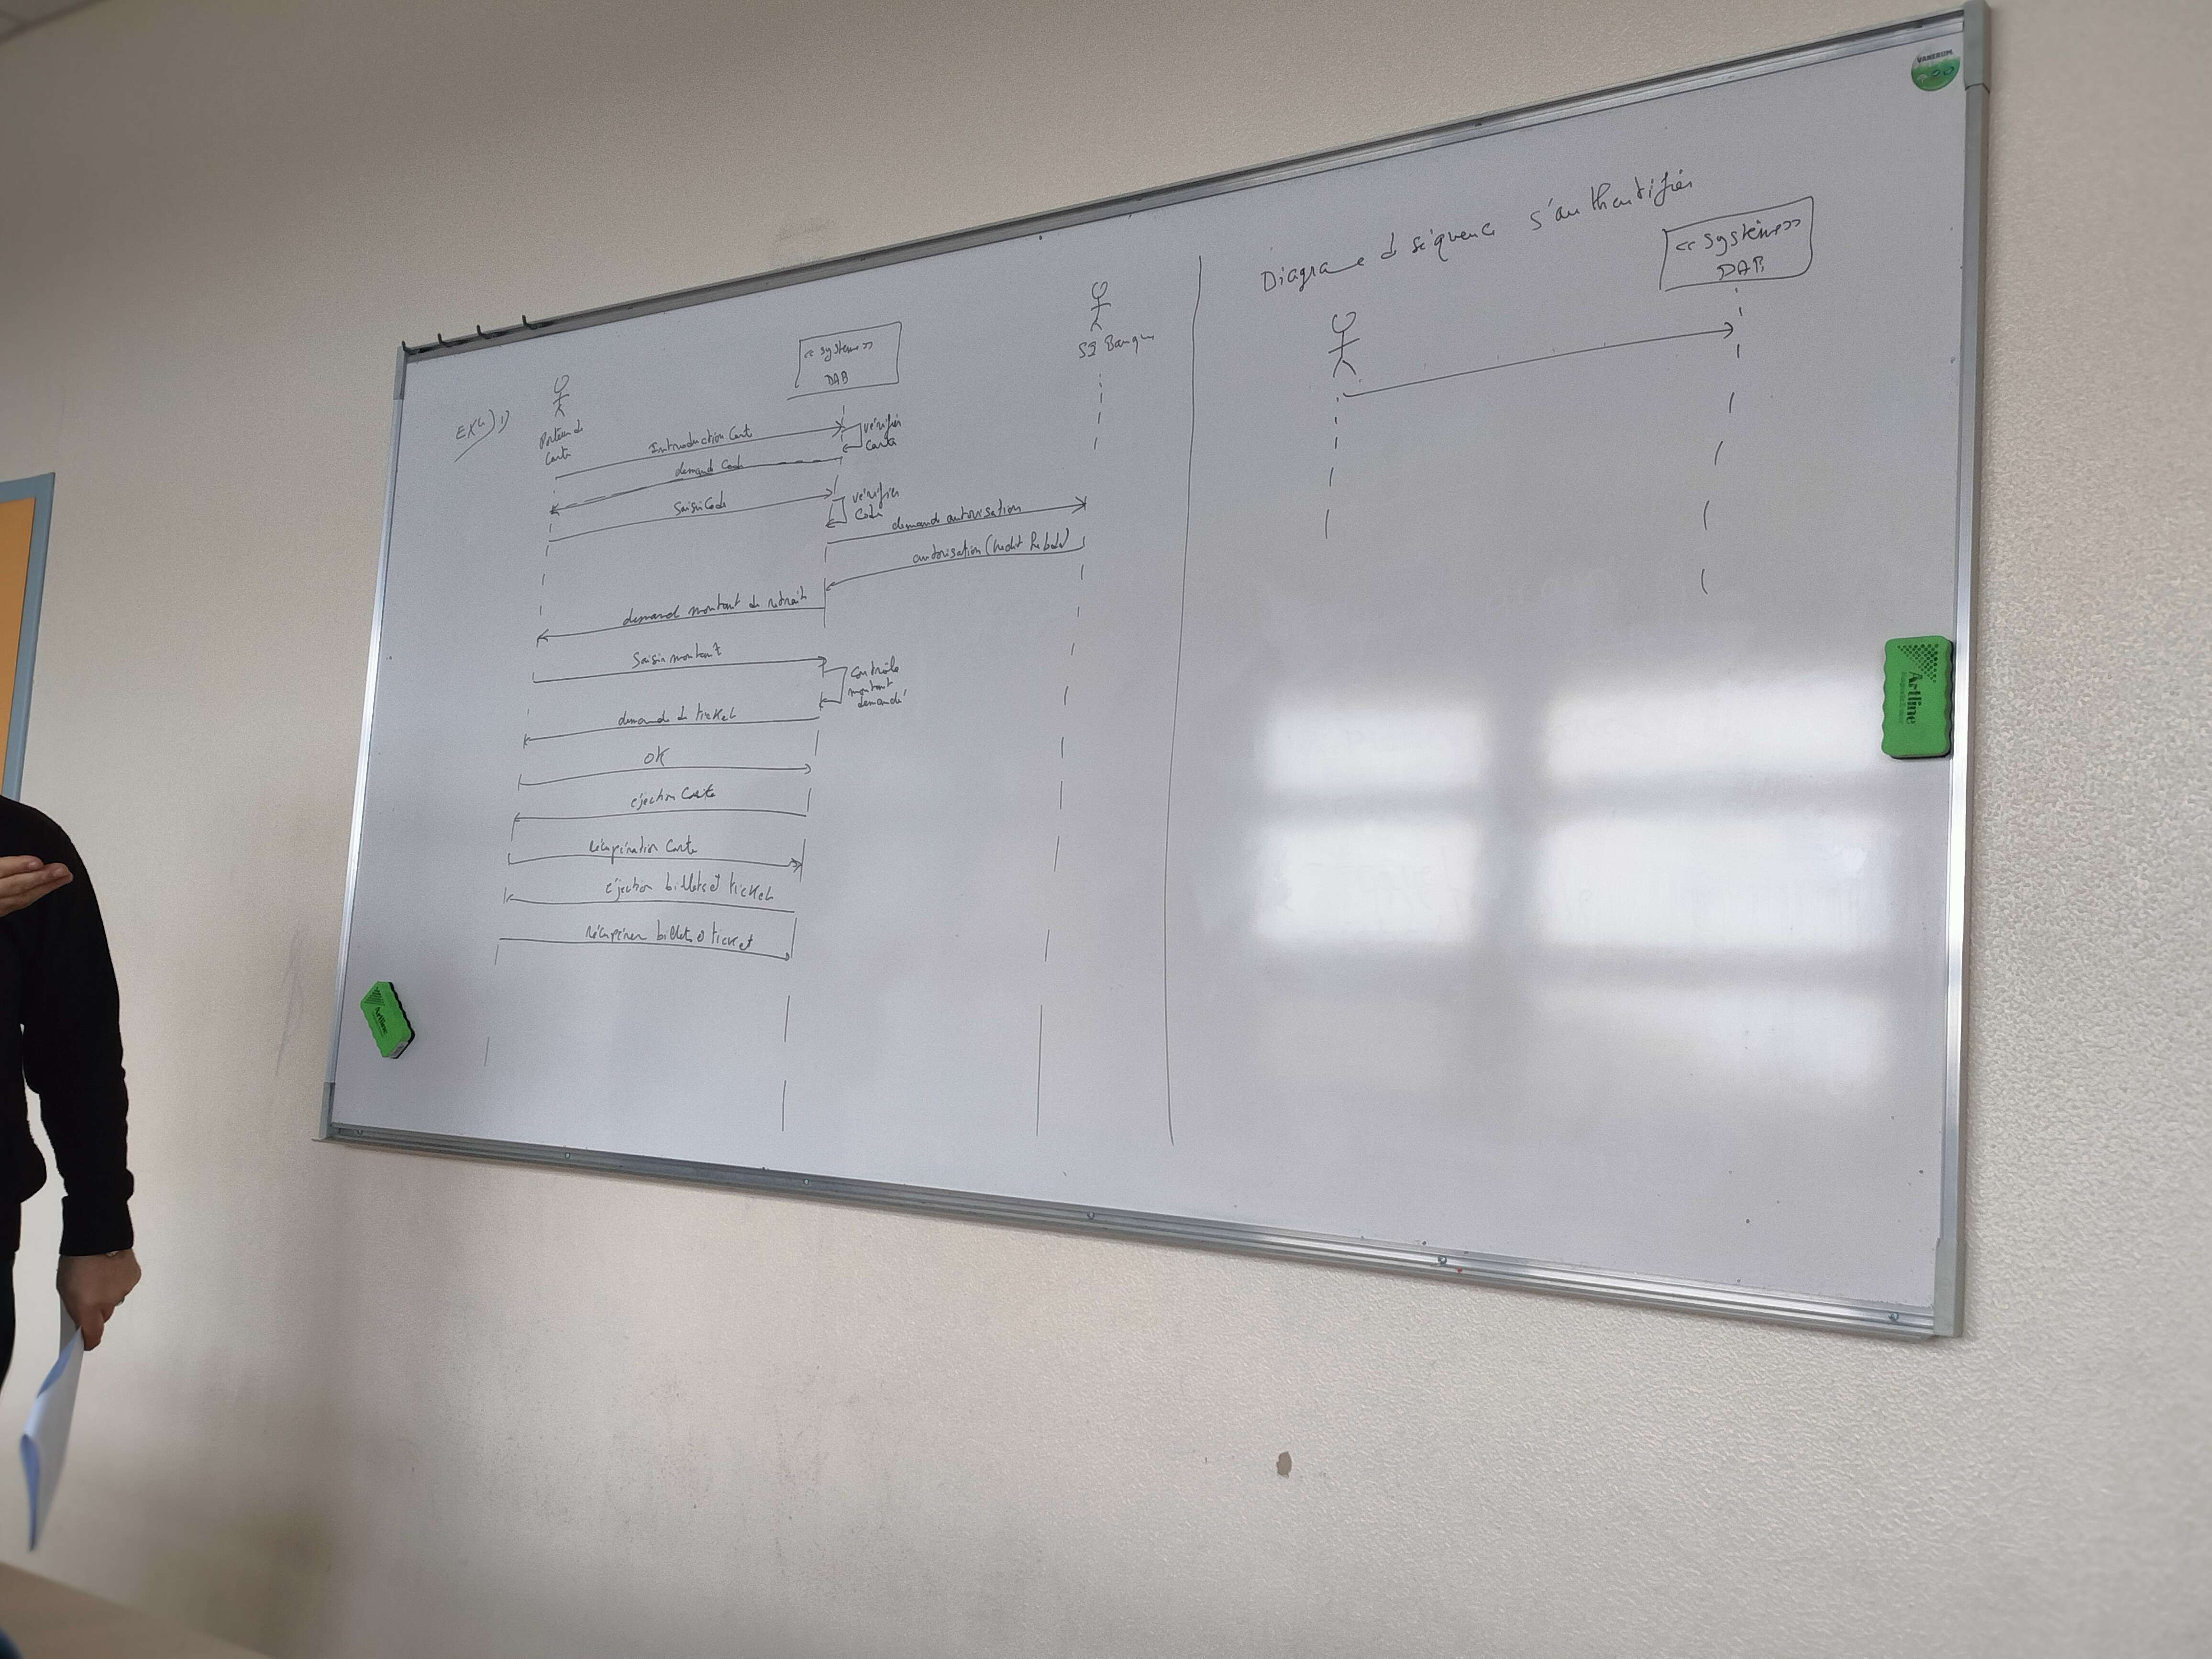 EX4) 1)
Porteur de
carte
<< système >>
DAB
SI Banque
Introduction Carte
vérifier
carte
demande Code
Saisir Code
vérifier
Code
demande autorisation
autorisation
demande montant de retrait
Saisir montant
contrôle
montant
demandé
demande de ticket
OK
éjection Carte
récupération Carte
éjection billets et ticket
récupérer billets ticket
Diagrame d séquence s'authentifier
<< Système >>
DAB
VANERUM
Artline
Artline